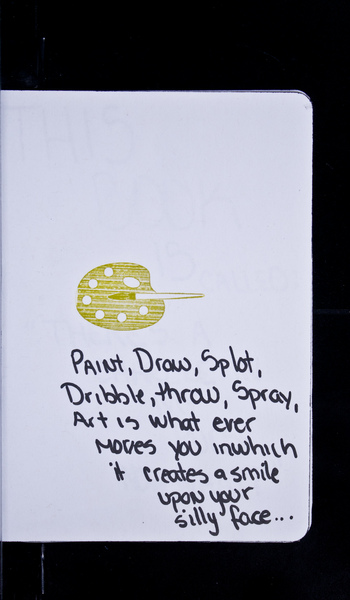 PAINT, Draw, Splot,
Dribble, throw, Spray,
Art is what ever
moves you inwhich
it creates a smile
upon your
silly face...